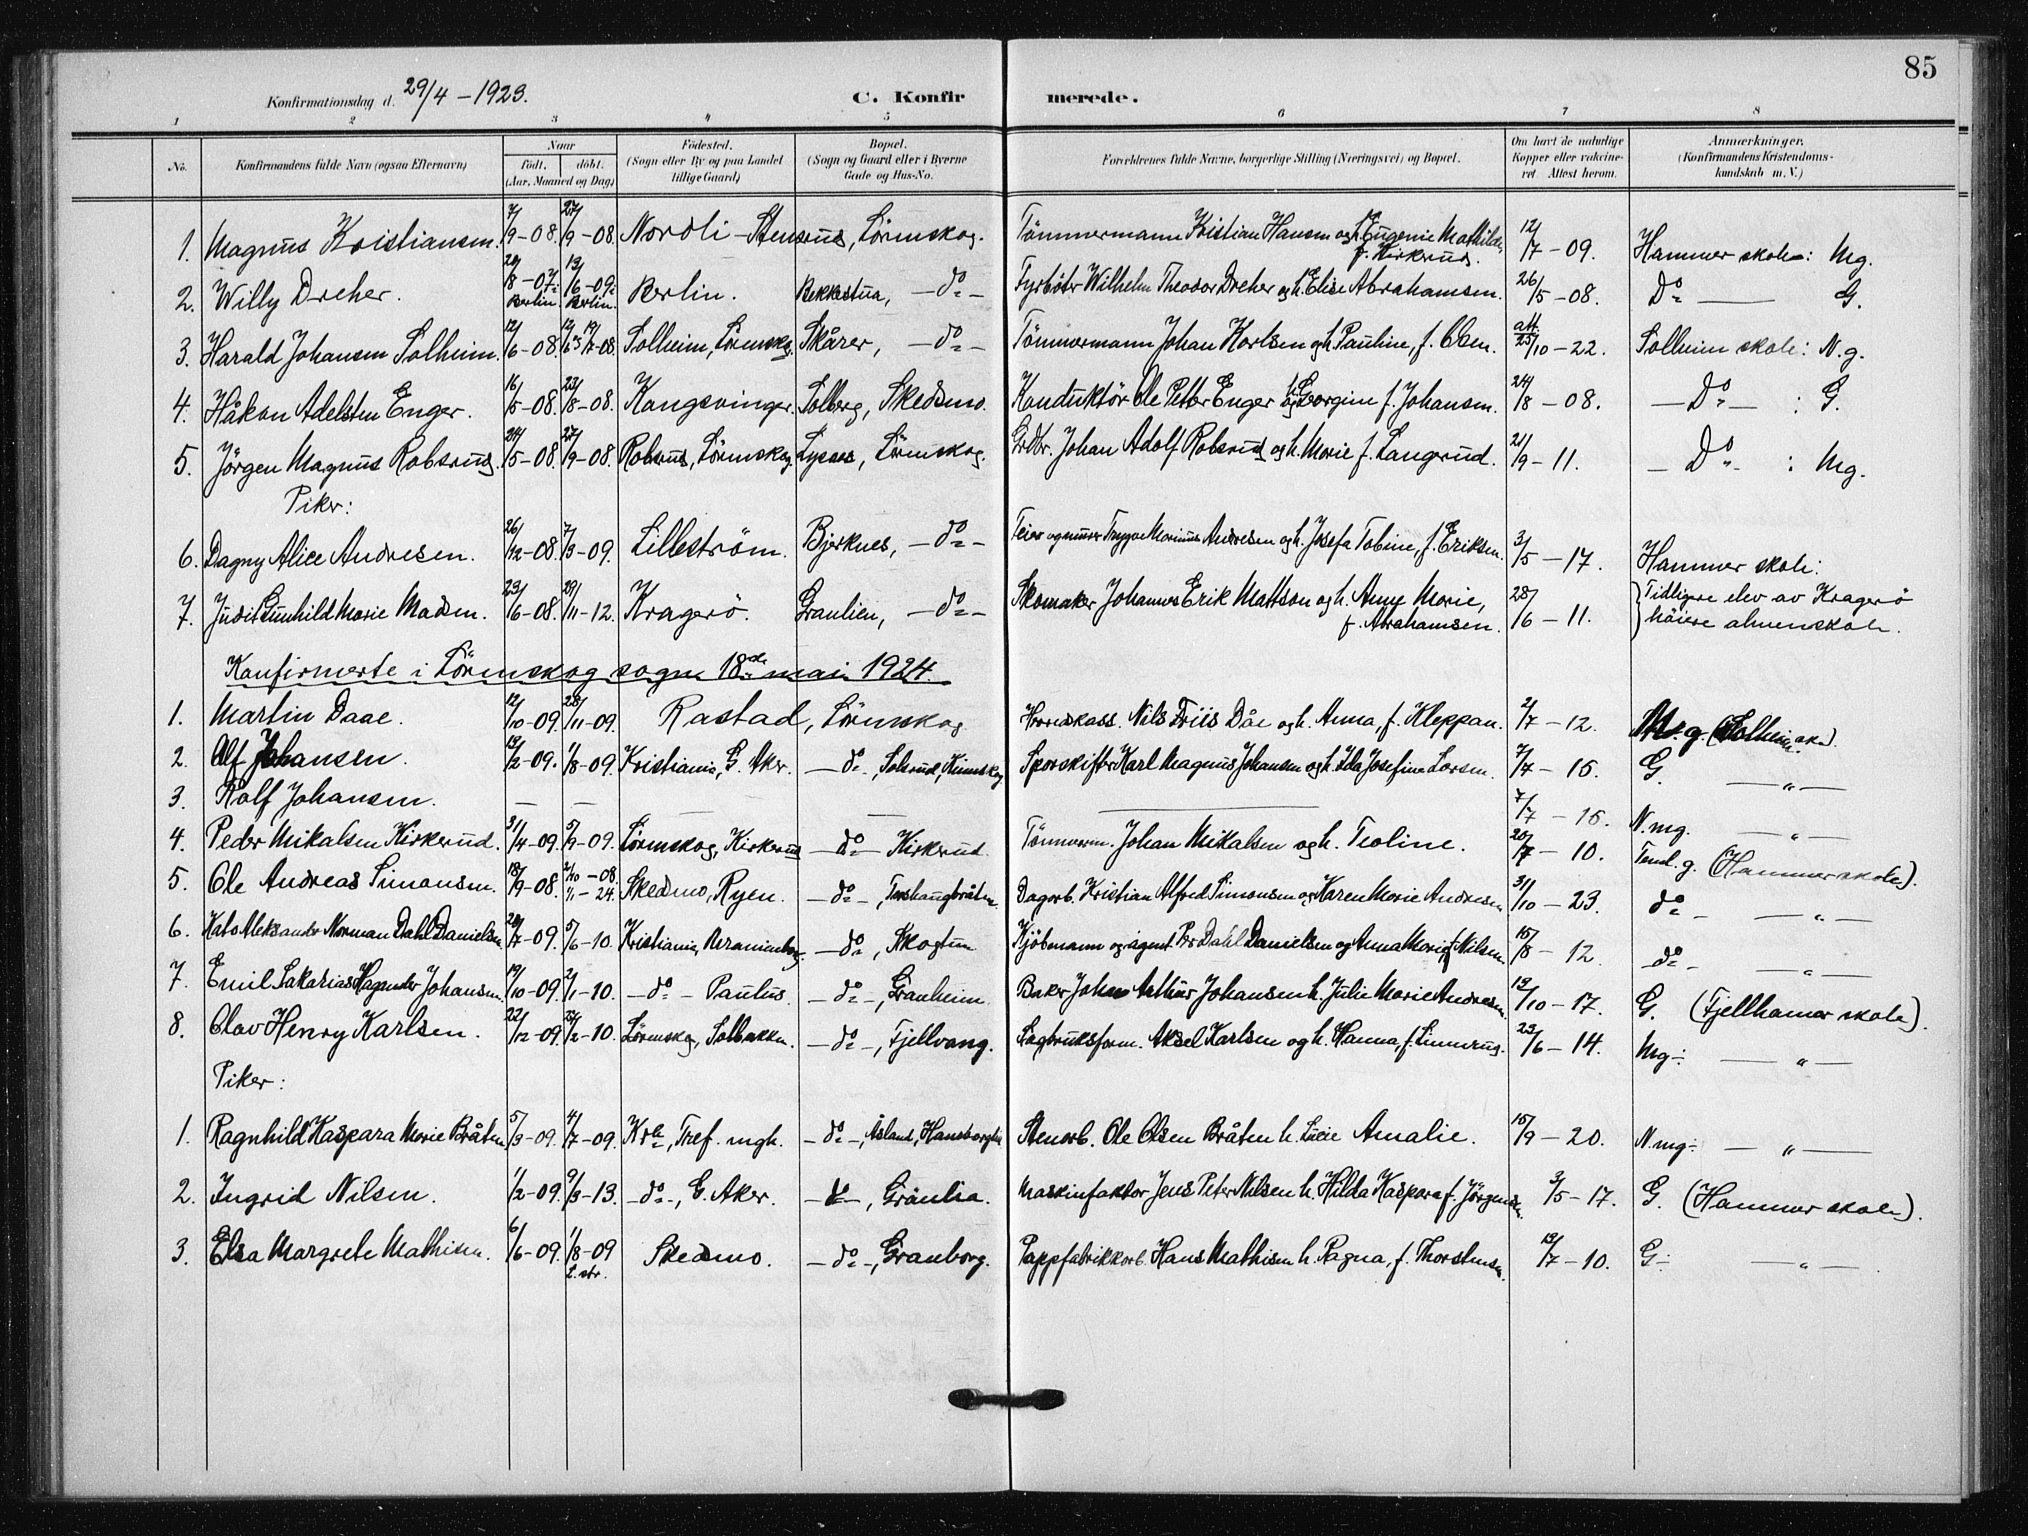 85
Konfirmationsdag d. 29/4 – 1923.
C. Konfirmerede.
1 2 3 4 5 6 7 8
No.
Konfirmandens fulde Navn (ogsaa Efternavn)
Naar
født. døbt.
(Aar, Maaned og Dag)
Fødested.
(Sogn eller By og paa Landet
tillige Gaard)
Bopæl.
(Sogn og Gaard eller i Byerne
Gade og Hus-No.
Forældrenes fulde Navne, borgerlige Stilling (Næringsvei) og Bopæl.
Om havt de naturlige
Kopper eller vaksine-
ret. Attest herom.
Anmærkninger.
(Konfirmandens Kristendoms-
kundskab m. V.)
1. Magnus Kristiansen. 7/9-08. 27/9-08. Nordli - Stensrud, Lörenskog. Tömmermann Kristian Hansen og h. Eugenie Mathilde f. Kirkerud. 12/7 - 09. Hammer skole: Mg.
2. Willy Dreher. 20/8-07. Berlin 13/6-09. Berlin. Berlin. Bekkestua, – do – Fyrböter Wilhelm Theodor Dreher og h. Elise Abrahamsen. 26/5 - 08. Do — G.
3. Harald Johansen Solheim. 12/6-08. 12/6 19/7-08. Solheim, Lörenskog. Skårer, – do – Tömmermann Johan Karlsen og h. Pauline, f. Olsen. att. 25/10 - 22. Solheim skole: N.g.
4. Håkon Adelsten Enger. 16/5-08. 23/8-08. Kongsvinger. Solberg, Skedsmo. Konduktör Ole Petter Enger og h. Borgine f. Johansen. 24/8 - 08. – Do – : G.
5. Jörgen Magnus Robsrud. 24/5-08. 27/9-08. Robsrud, Lörenskog. Lysaas, Lörenskog. Grdbr. Johan Adolf Robsrud og h. Marie f. Langerud. 21/9 - 11. – Do – : Mg.
Piker:
6. Dagny Alice Andresen. 26/12-08. 7/3-09. Lilleström. Bjerknes, – do – Trygve Marinus Andresen og h. Josefa Tobine, f. Eriksen. 3/5 - 17. Hammer skole:
7. Judit Gunhild Marie Madsen. 23/6-08. 29/11-12. Kragerö. Granlien, – do – Skomaker Johannes Erik Mattson og h. Anne Marie, f. Abrahamsen. 28/6 - 11. Tidligere elev av Kragerö
höiere almenskole.
Konfirmerte i Lörenskog sogn 18de mai 1924.
1. Martin Daae. 12/10-09. 28/11-09. Rastad, Lörenskog Herredskass. Nils Friis Dåe og h. Anna, f. Kleppan. 2/7 - 12. M.g. (Solheim sk.).
2. Alf Johansen. 13/2-09. 1/8-09. Kristiania, G. Aker. – do –, Solrud, Sporskifter Karl Magnus Johansen og h. Ida Josefine Larsen. 7/7 - 15. G. — „ —
3. Rolf Johansen. – – — — — 7/7 - 15. N.mg. — „ —
4. Peder Mikalsen Kirkerud. 31/4-09. 5/9-09. Lörenskog, Kirkerud – do – Kirkerud. Tömmerm. Johan Mikalsen og h. Teoline. 20/7 - 10. Temd. g. (Hammer skole).
5. Ole Andreas Simonsen. 18/9-08. 2/10-08. 1/1-24. Skedsmo, Ryen. – do –, Torshaugbråten. Dagarb. Kristian Alfred Simonsen og Karen Marie Andresen 31/10 - 23. do – — „ —
6. Kato Aleksander Norman Dahl Danielsen. 20/7-09. 5/6-10. Kristiania, – do –, Skogtun Kjöbmann og agent Per Dahl Danielsen og Anna Marie f. Nilsen. 15/8 - 12. – do – — „ —
7. Emil Sakarias Johansen. 19/10-09. 2/1-10. – do – Paulus. – do –, Granheim. Baker Johan Arthur Johansen h. Julie Marie Andresen. 13/10 - 17. G. (Fjellhamar skole).
8. Olav Henry Karlsen. 22/12-09. 23/2-10. Lörenskog, Solbakken. – do –, Fjellvang. Sagbruksform. Aksel Karlsen og h. Hanna, f. Linnerud. 23/6 - 14. Mg: — „ —
Piker:
1. Ragnhild Kaspara Marie Bråten. 5/3-09. 4/7-09. Kra, Tref. mgh. – do –, Åsland, Stenarb. Ole Olsen Bråten h. Lucie Amalie. 15/9 - 20. N.mg: — „ —
2. Ingrid Nilsen. 1/2-09. 9/3-13. – do –, G. Aker. – do –, Grånlia. Maskinfaktor Jens Peter Nilsen h. Hilda Kaspara f. Jörgensen. 3/5 - 17. G. (Hammer skole).
3. Elsa Margrete Mathisen. 6/6-09. 1/8-09 Skedsmo. – do –, Granborg. Pappfabrikkarb. Hans Mathisen h. Ragna, f. Thorstensen. 13/7 - 10. G: — „ —